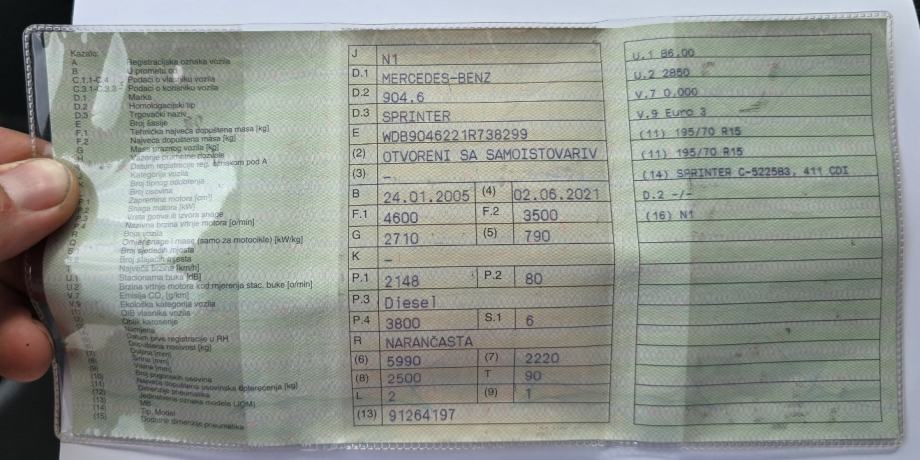 Kazalo:
A Registracijska oznaka vozila
B U prometu od
C.1.1-C.4 Podaci o vlasniku vozila
C.3.1-C.3.3 - Podaci o korisniku vozila
D.1 Marka
D.2 Homologacijski tip
D.3 Trgovački naziv
E Broj šasije
F.1 Tehnička najveća dopuštena masa [kg]
F.2 Najveća dopuštena masa [kg]
G Masa praznog vozila [kg]
Važenje prometne dozvole
Datum registracije
pod A
Kategorija vozila
Broj tipnog odobrenja
Broj osovina
Zapremina motora [cm³]
Snaga motora [kW]
Vrsta goriva ili izvora snage
Nazivna brzina vrtnje motora [o/min]
Boja vozila
Omjer snage i mase (samo za motocikle) [kW/kg]
Broj sjedećih mjesta
Broj stajaćih mjesta
T Najveća brzina [km/h]
U.1 Stacionarna buka [dB]
U.2 Brzina vrtnje motora kod mjerenja stac. buke [o/min]
V.7 Emisija CO₂ [g/km]
V.9 Ekološka kategorija vozila
OIB vlasnika vozila
Oblik karoserije
Namjena
Datum prve registracije u RH
Dopuštena nosivost [kg]
Duljina [mm]
(6) Širina [mm]
(8) Visina [mm]
(9) Broj pogonskih osovina
(10) Najveća dopuštena osovinska opterećenja [kg]
(11) Dimenzije pneumatika
(12) Jedinstvena oznaka modela (JOM)
(13) MB
(14) Tip, Model
(15) Dodatne dimenzije pneumatika
J N1
D.1 MERCEDES-BENZ
D.2 904.6
D.3 SPRINTER
E WDB9046221R738299
(2) OTVORENI SA SAMOISTOVARIV
(3) -
B 24.01.2005 (4) 02.06.2021
F.1 4600 F.2 3500
G 2710 (5) 790
K -
P.1 2148 P.2 80
P.3 Diesel
P.4 3800 S.1 6
R NARANČASTA
(6) 5990 (7) 2220
(8) 2500 T 90
L 2 (9) 1
(13) 91264197
U.1 86.00
U.2 2850
V.7 0.000
V.9 Euro 3
(11) 195/70 R15
(11) 195/70 R15
(14) SPRINTER C-522583, 411 CDI
D.2 -/-
(16) N1